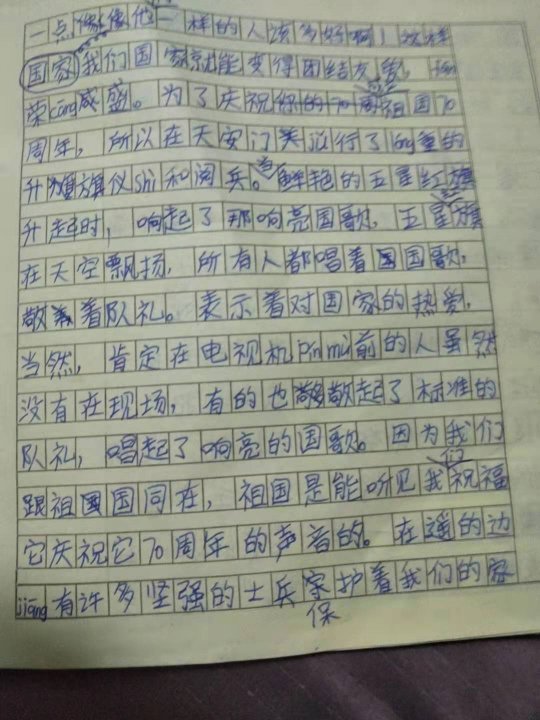 一点像像他一样的人该多好啊！这样
国家我们国家就能变得团结友爱，
荣cāng盛盛。为了庆祝你的70周祖国70
周年，所以在天安门美设行了lóng重的
升旗旗仪shì和阅兵。当鲜艳的五星红旗
升起时，响起了那响亮国歌，五星旗
在天空飘扬，所有人都唱着国国歌，
敬着队礼。表示着对国家的热爱，
当然，肯定在电视机pínmù前的人虽然
没有在现场，有的也敬敬起了标准的
队礼，唱起了响亮的国歌。因为我们
跟祖国国同在，祖国是能听见我们祝福
它庆祝它70周年的声音的。在遥的边
jiāng有许多坚强的士兵家护着我们的家
保